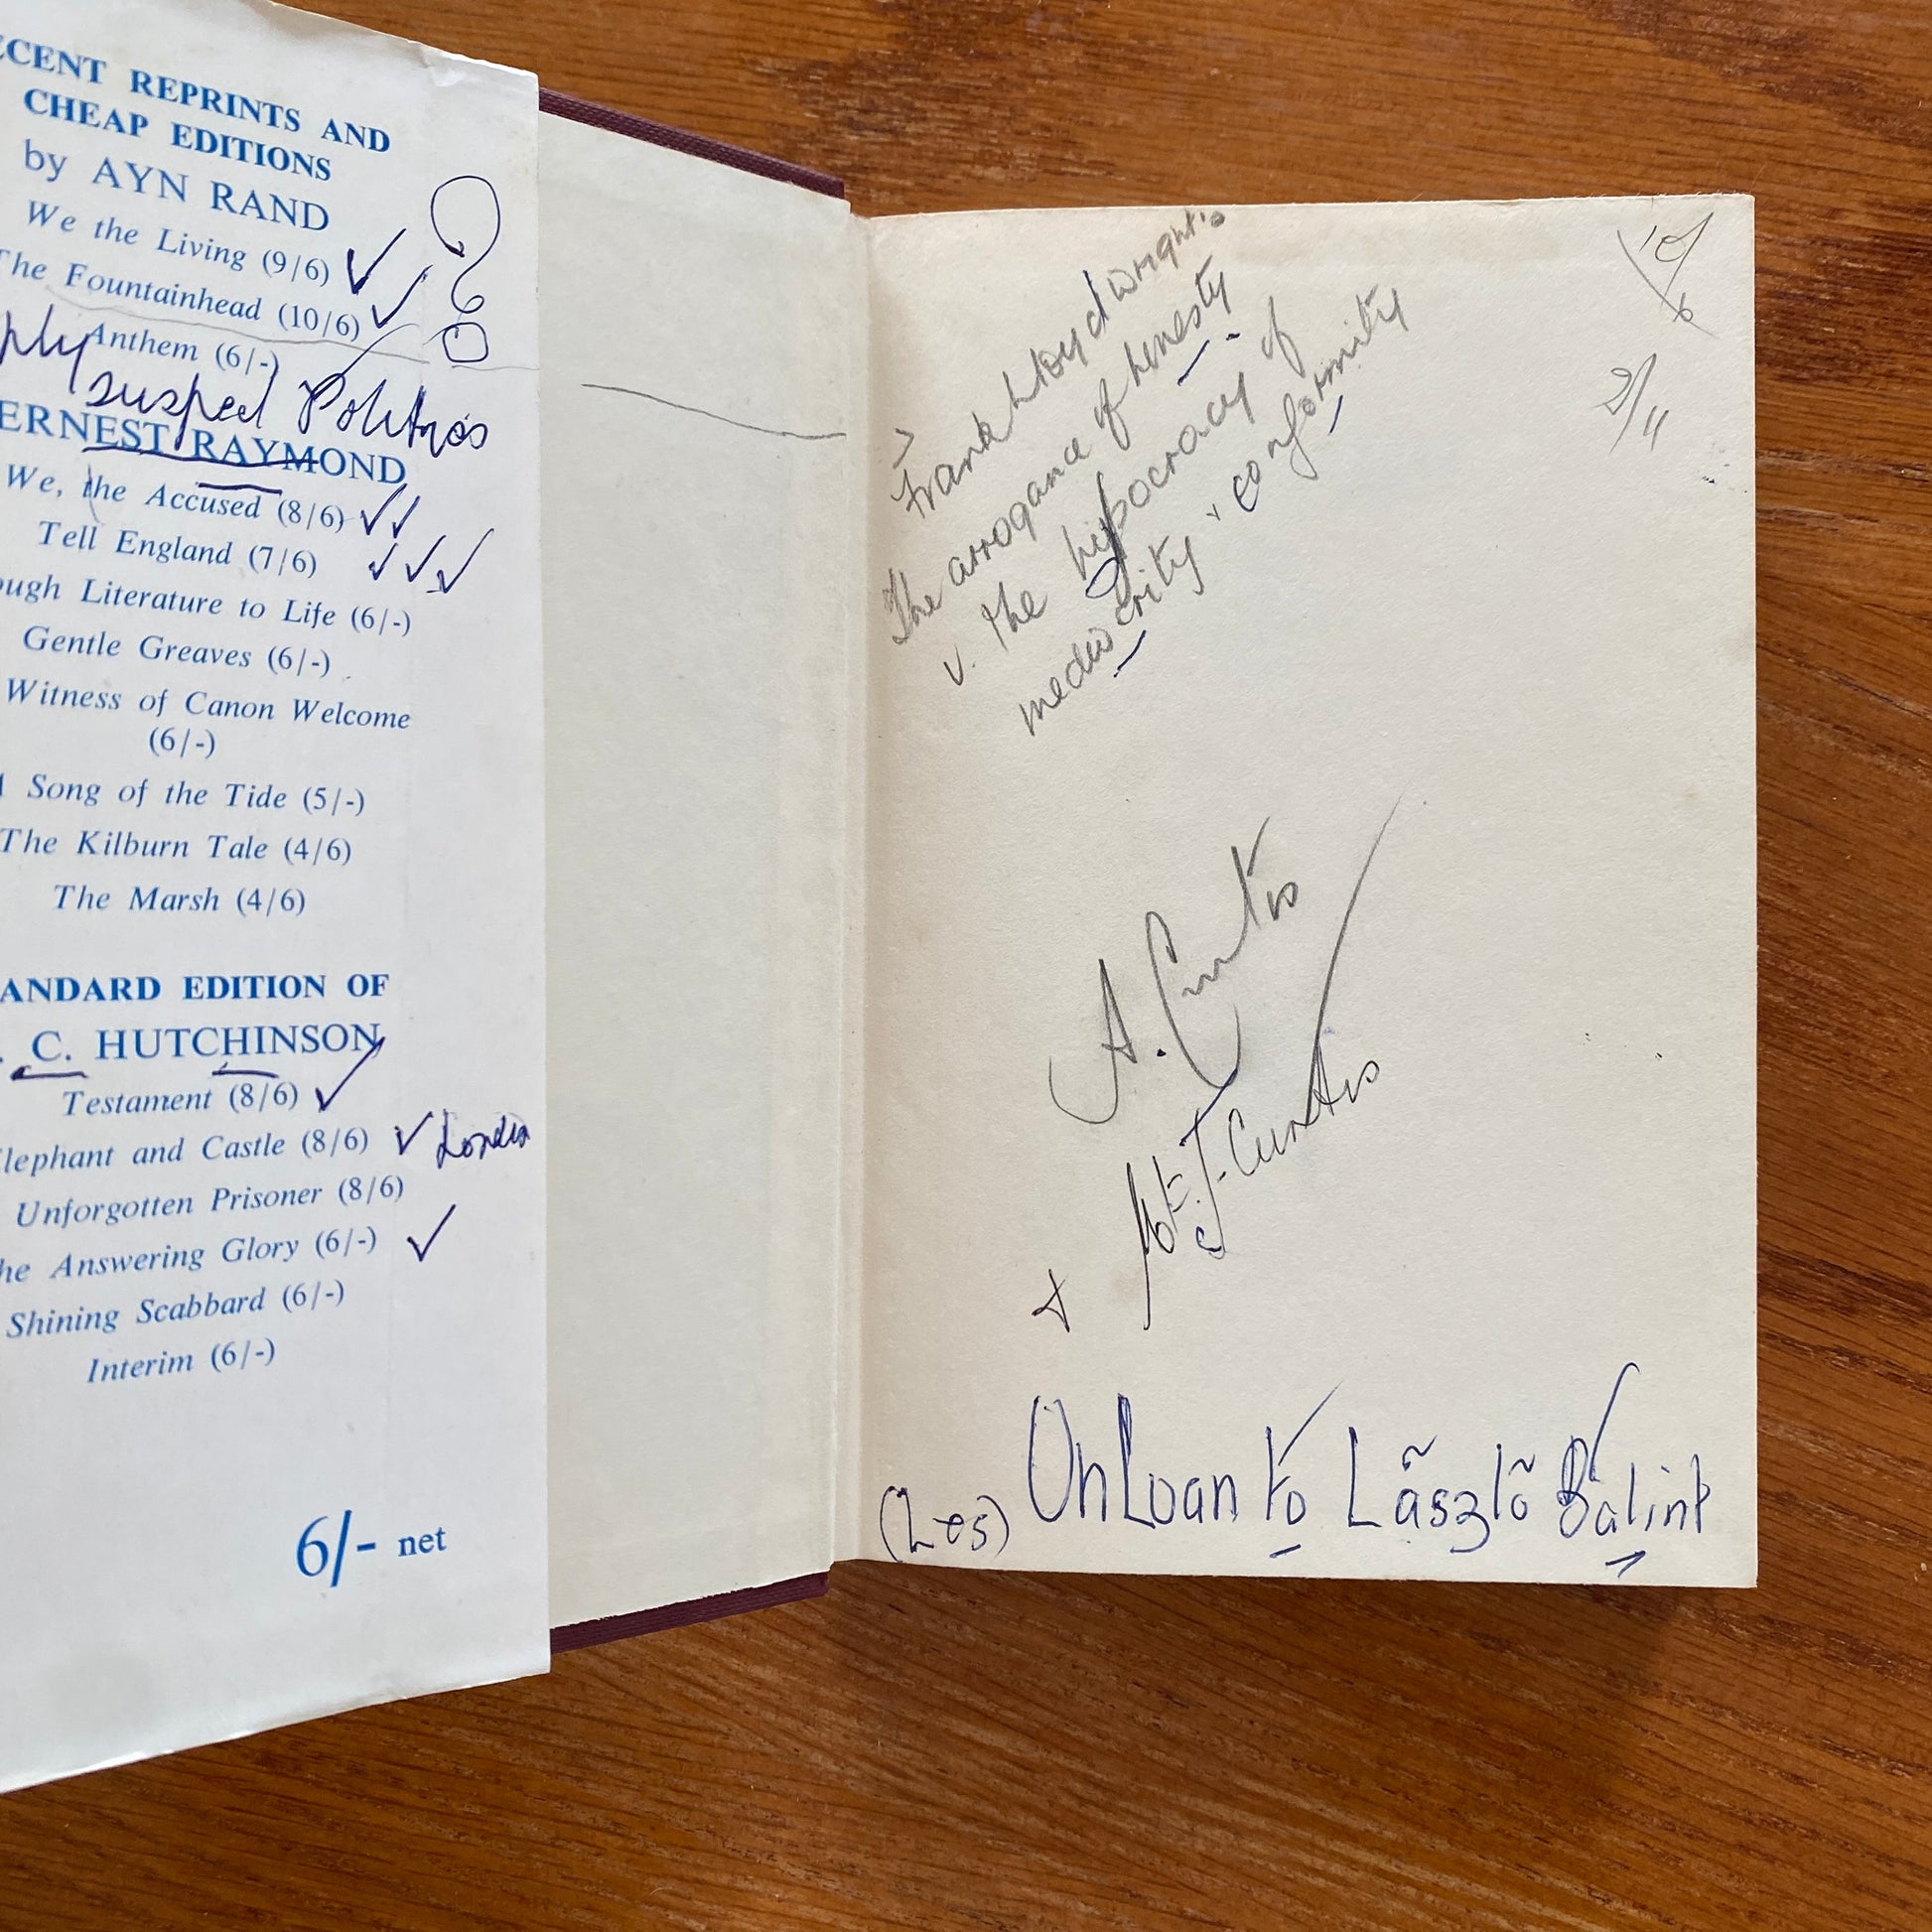 RECENT REPRINTS AND
CHEAP EDITIONS
by AYN RAND
We the Living (9/6)
The Fountainhead (10/6)
Anthem (6/-)
suspect Politics
ERNEST RAYMOND
We, the Accused (8/6)
Tell England (7/6)
ough Literature to Life (6/-)
Gentle Greaves (6/-)
Witness of Canon Welcome
(6/-)
A Song of the Tide (5/-)
The Kilburn Tale (4/6)
The Marsh (4/6)
ANDARD EDITION OF
. C. HUTCHINSON
Testament (8/6)
Elephant and Castle (8/6) London
Unforgotten Prisoner (8/6)
The Answering Glory (6/-)
Shining Scabbard (6/-)
Interim (6/-)
6/- net
Frank Lloyd Wright's
The arrogance of honesty
v. the hypocracy of
mediocrity + conformity
10/6
2/11
A. Curtis
+ M.E.J. Curtis
(Les) On Loan to László Bálint